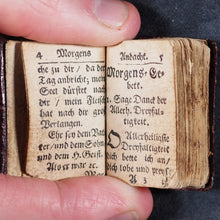 4 Morgens
che zu dir / da der
Tag anbricht, mein
Seel dürstet nach
dir / mein Fleisch
hat nach dir groß
Verlangen.
Ehr sey dem Vat-
ter / und dem Sohn
und dem H. Geist.
Als es war ec.
Andacht. 5
Morgens-Ge-
bett.
1. Sage Danck der
Allerh. Dreyfal-
tigkeit.
O Allerheiligste
Dreyfaltigkeit
dich bette ich an /
dich lobe und preyß
A 3